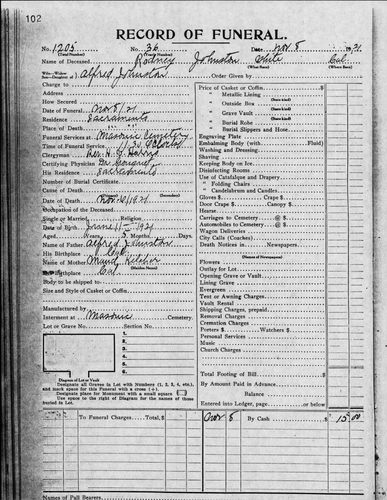 102
RECORD OF FUNERAL.
No. 1203 (Total Number) No. 36 (Yearly Number) Date, Nov 8 1921
Name of Deceased Rodney Johnston White (What Race) Cal (Where Born)
Alfred Johnston Order Given by
Charge to
Address
How Secured
Date of Funeral Nov 8/21
Residence Sacramento
Place of Death
Funeral Services at Masonic Cemetery
Time of Funeral Service 11:30 O'clock
Clergyman Rev. H. E. Harris
Certifying Physician Dr.
His Residence Sacramento
Number of Burial Certificate
Cause of Death (Secondary)
Date of Death Nov 1921
Occupation of the Deceased
Single or Married Religion
Date of Birth June 11 - 1921
Aged Years 5 Months Days.
Name of Father Alfred Johnston
His Birthplace Cal
Name of Mother Maud (Maiden Name)
Her Birthplace Cal.
Body to be shipped to
Size and Style of Casket or Coffin
Manufactured by
Interment at Masonic Cemetery.
Lot or Grave No. Section No.
1.
2.
3.
4.
5.
6.
Diagram of Lot or Vault
Designate all Graves in Lot with Numbers (1, 2, 3, 4, etc.),
and mark space for this Funeral with a cross (+).
Designate place for Monument with a small square
Use space to the right of Diagram for the names of those
buried in Lot.
Price of Casket or Coffin $
" Metallic Lining (State kind)
" Outside Box (State kind)
" Grave Vault (State kind)
" Burial Robe (State kind)
" Burial Slippers and Hose
Engraving Plate
Embalming Body (with Fluid)
Washing and Dressing
Shaving
Keeping Body on Ice
Disinfecting Rooms
Use of Catafalque and Drapery
" Folding Chairs
" Candelabrum and Candles
Gloves $ Crape $
Door Crape $ Canopy $
Hearse
Carriages to Cemetery @ $
Automobiles to Cemetery @ $
Wagon Deliveries
City Calls (Coaches)
Death Notices in Newspapers.
(Names of Newspapers)
Flowers
Outlay for Lot
Opening Grave or Vault
Lining Grave
Evergreen
Tent or Awning Charges
Vault Rental
Shipping Charges, prepaid
Removal Charges
Cremation Charges
Porters $ Watchers $
Personal Services
Music
Church Charges
Total Footing of Bill $
By Amount Paid in Advance
Balance
Entered into Ledger, page or below
To Funeral Charges, Total, $ Nov 8 By Cash $ 15 00
Names of Pall Bearers